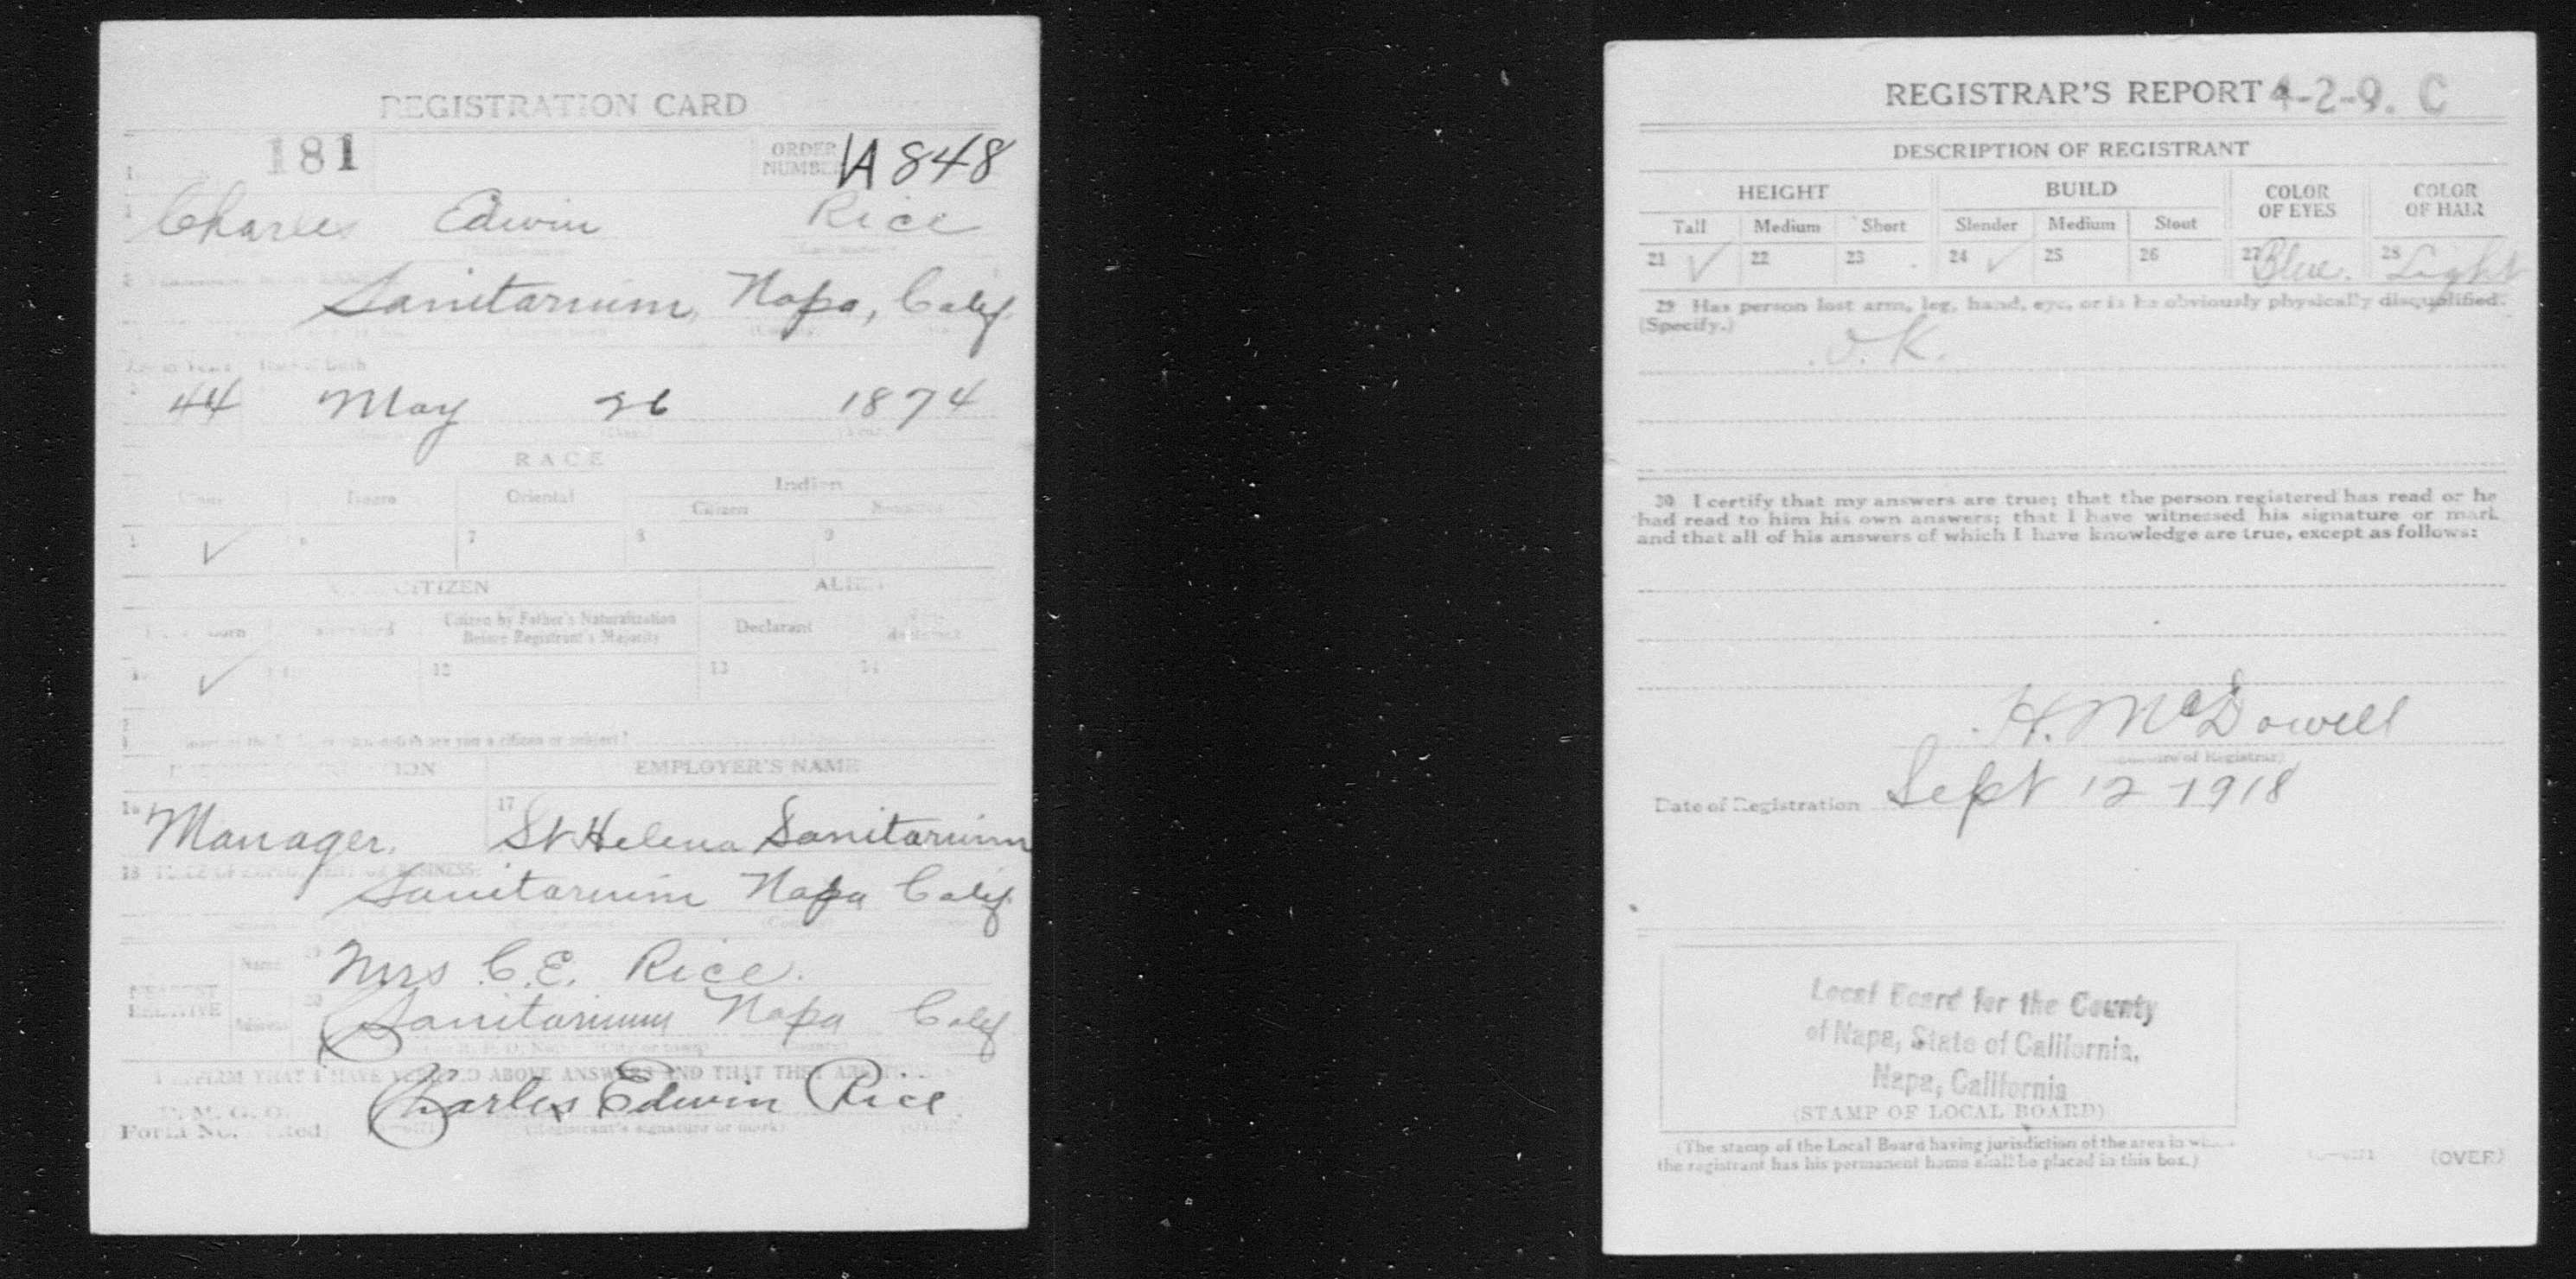 REGISTRATION CARD
181 ORDER NUMBER A848
Charles Edwin Rice
Sanitarium, Napa, Calif.
44 May 26 1874
RACE
Oriental Indian
Citizen
7 8 9
CITIZEN
Citizen by Father's Naturalization Before Registrant's Majority Declarant
12 13 14
are you a citizen or subject?
EMPLOYER'S NAME
16 Manager. 17 St Helena Sanitarium
18 BUSINESS:
Sanitarium Napa Calif.
Name Mrs C. E. Rice.
NEAREST RELATIVE
Address 20 Sanitarium Napa Calif
I AFFIRM THAT I HAVE VERIFIED ABOVE ANSWERS AND THAT THEY ARE
P. M. G. O.
Form No. Charles Edwin Rice
(Registrant's signature or mark)
REGISTRAR'S REPORT 4-2-9. C
DESCRIPTION OF REGISTRANT
HEIGHT BUILD COLOR OF EYES COLOR OF HAIR
Tall Medium Short Slender Medium Stout
21 ✓ 22 23 24 ✓ 25 26 27 Blue. 28 Light
29 Has person lost arm, leg, hand, eye, or is he obviously physically disqualified?
(Specify.)
O.K.
30 I certify that my answers are true; that the person registered has read or has
had read to him his own answers; that I have witnessed his signature or mark
and that all of his answers of which I have knowledge are true, except as follows:
H. McDowell
(Signature of Registrar)
Date of Registration Sept 12 1918
Local Board for the County
of Napa, State of California,
Napa, California
(STAMP OF LOCAL BOARD)
(The stamp of the Local Board having jurisdiction of the area in
the registrant has his permanent home shall be placed in this box.)
(OVER)